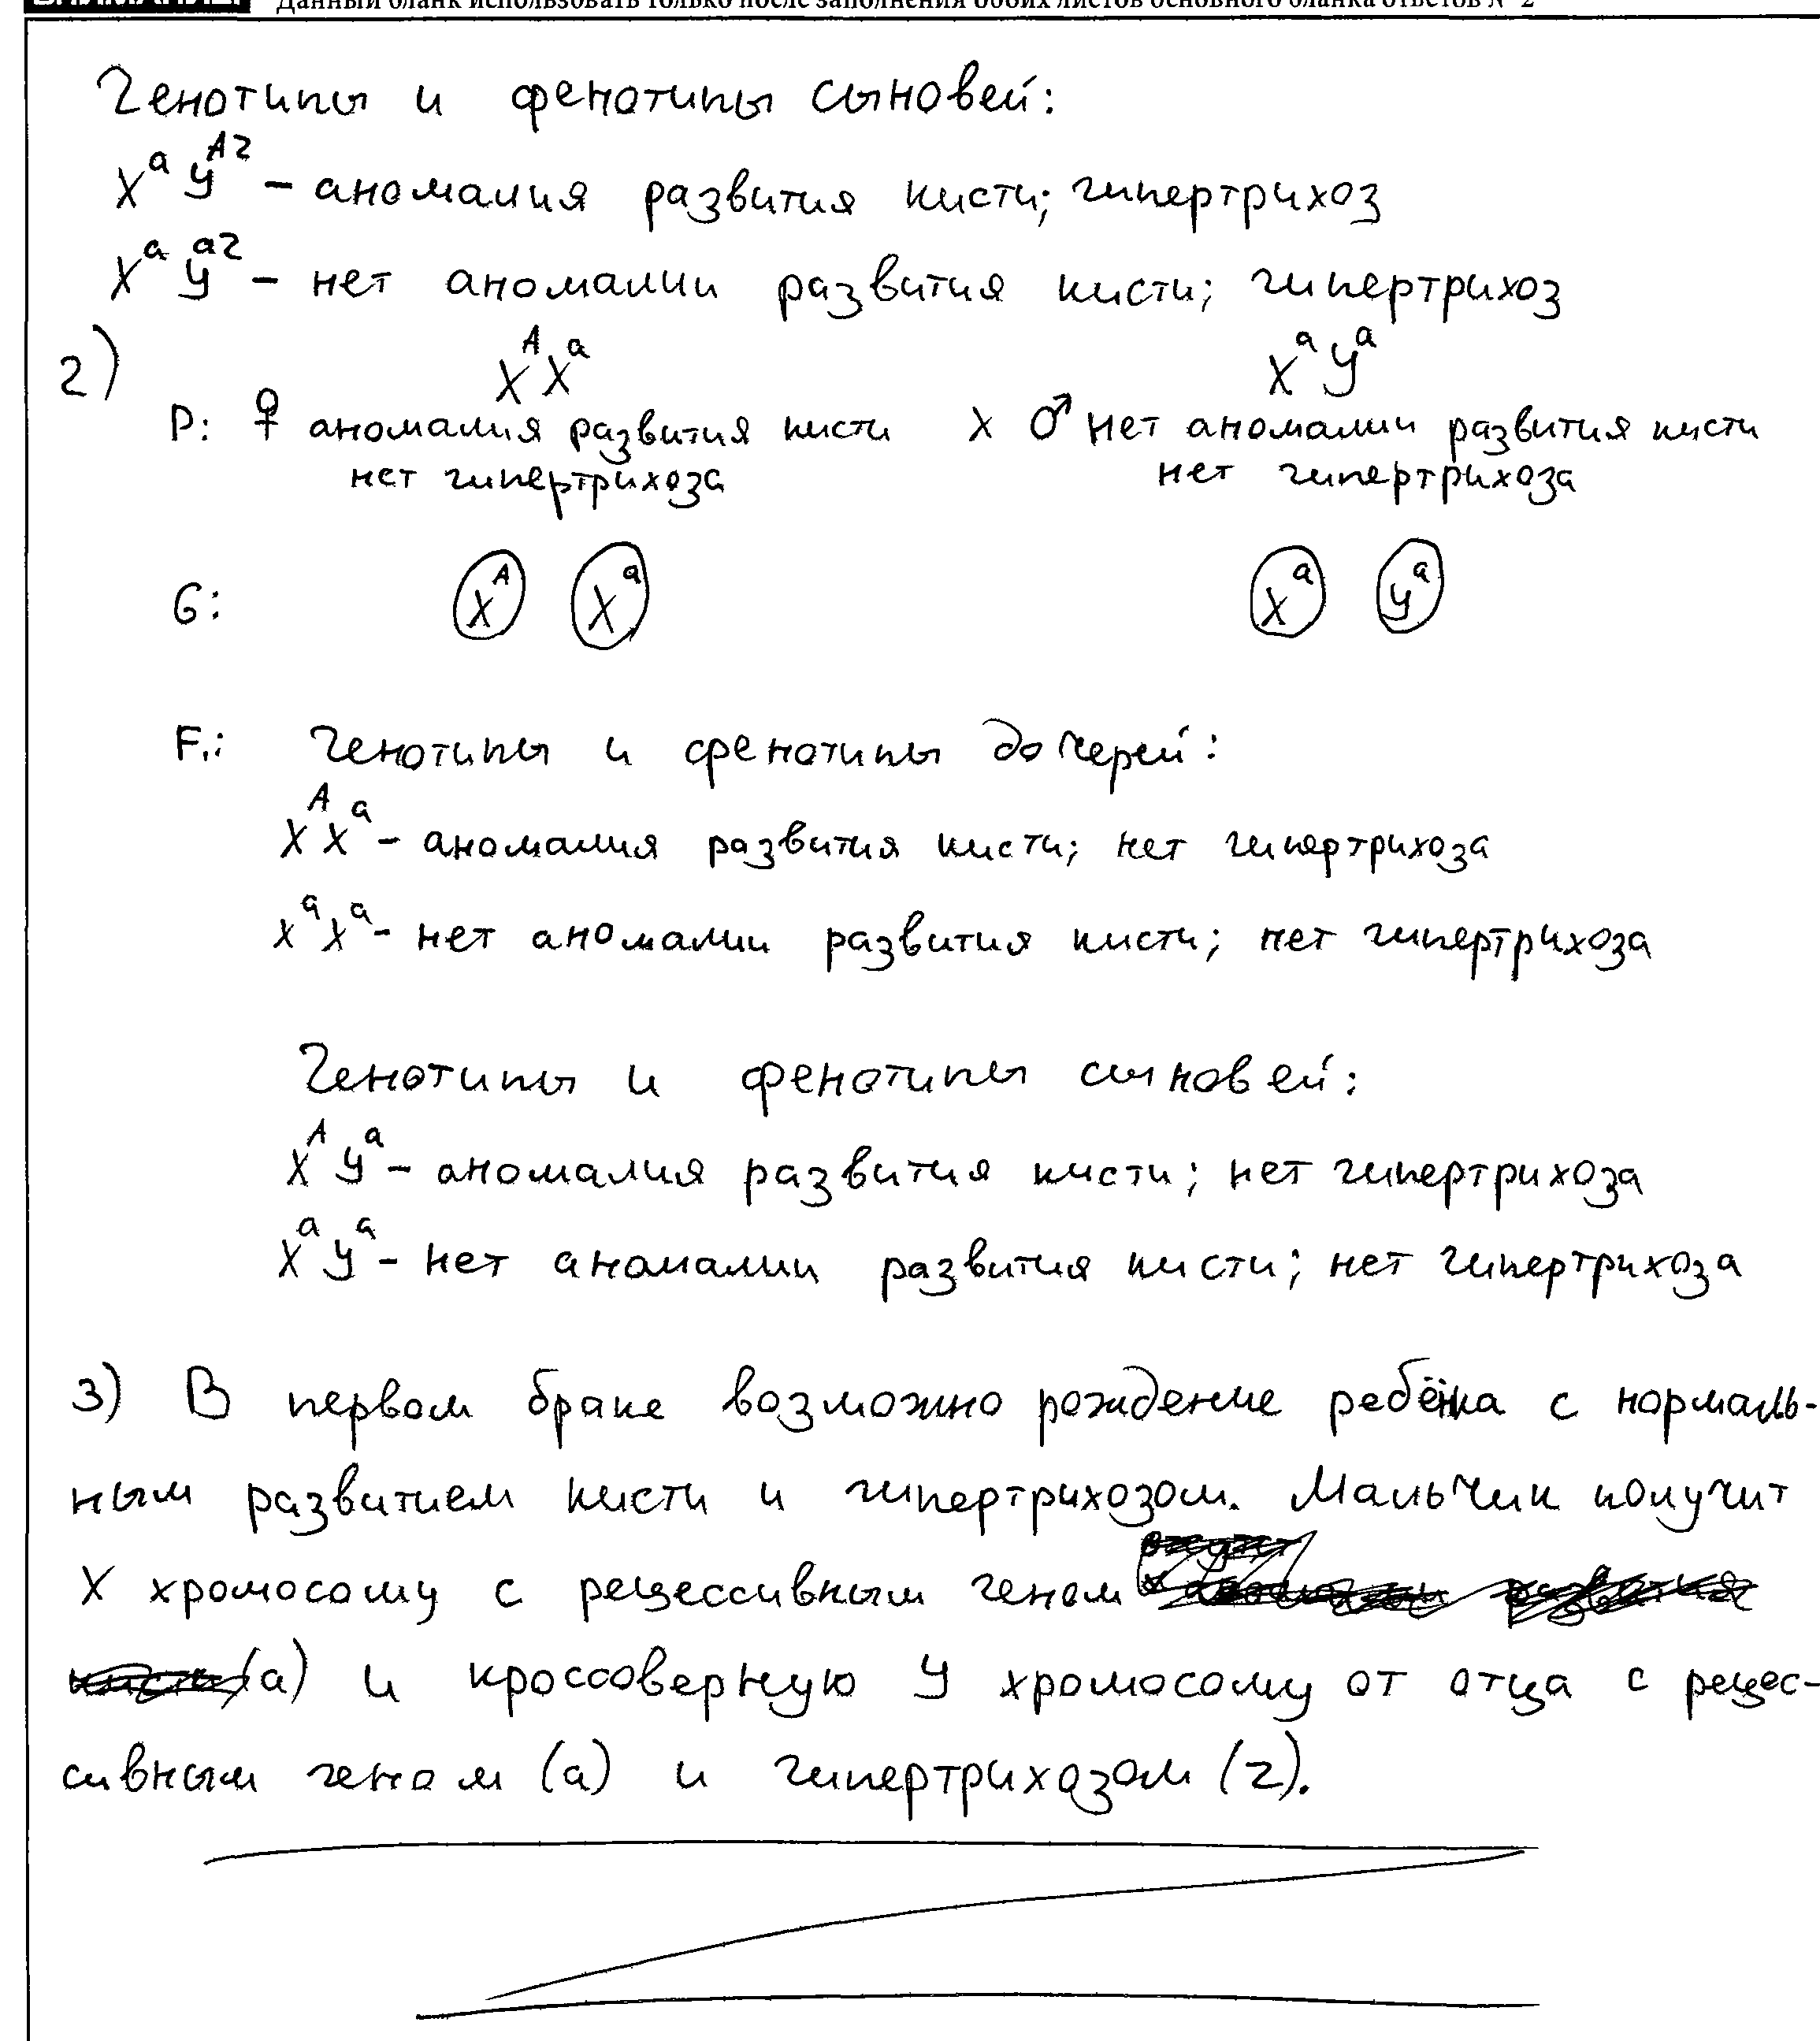 Данный бланк использовать только после заполнения обоих листов основного бланка ответов № 2
Генотипы и фенотипы сыновей:
XᵃYᴬᴦ - аномалия развития кисти; гипертрихоз
XᵃYᵃᴦ - нет аномалии развития кисти; гипертрихоз
2) XᴬXᵃ XᵃYᵃ
P: ♀ аномалия развития кисти x ♂ нет аномалии развития кисти
нет гипертрихоза нет гипертрихоза
G: Xᴬ Xᵃ Xᵃ Yᵃ
F₁: Генотипы и фенотипы дочерей:
XᴬXᵃ - аномалия развития кисти; нет гипертрихоза
XᵃXᵃ - нет аномалии развития кисти; нет гипертрихоза
Генотипы и фенотипы сыновей:
XᴬYᵃ - аномалия развития кисти; нет гипертрихоза
XᵃYᵃ - нет аномалии развития кисти; нет гипертрихоза
3) В первом браке возможно рождение ребёнка с нормаль-
ным развитием кисти и гипертрихозом. Мальчик получит
X хромосому с рецессивным геном
(а) и кроссоверную Y хромосому от отца с рецес-
сивным геном (а) и гипертрихозом (г).